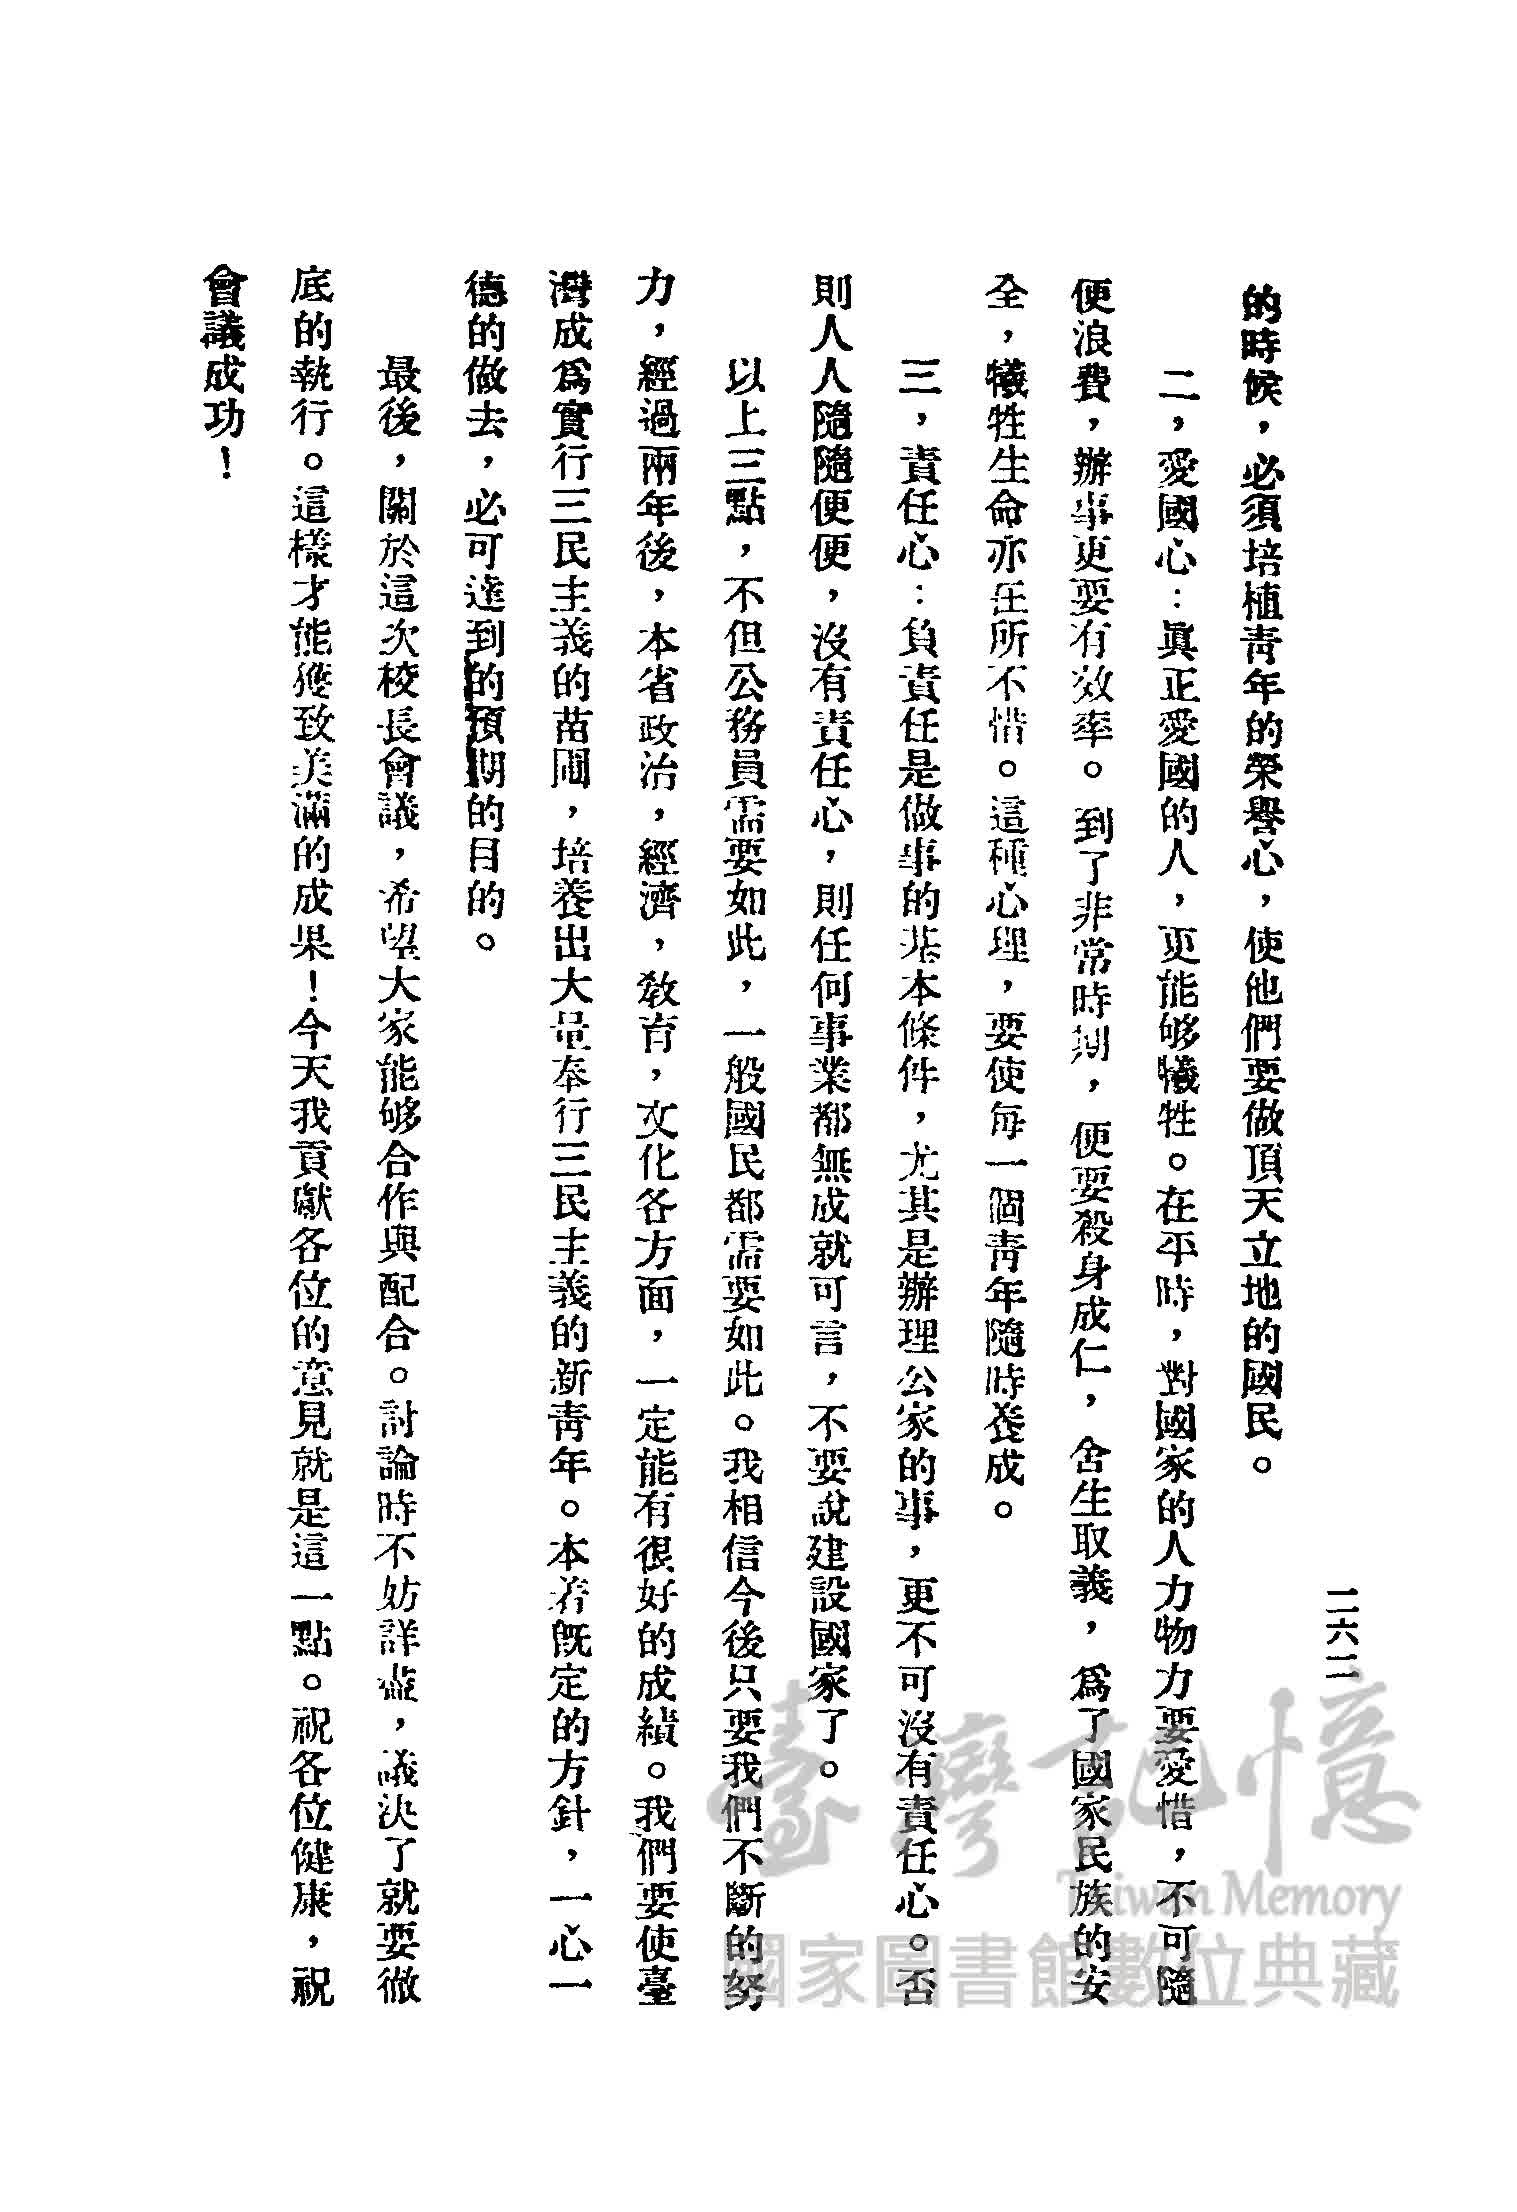 二六二
的時候，必須培植靑年的榮譽心，使他們要做頂天立地的國民。
二，愛國心：眞正愛國的人，更能够犧牲。在平時，對國家的人力物力要愛惜，不可隨
便浪費，辦事更要有效率。到了非常時期，便要殺身成仁，舍生取義，爲了國家民族的安
全，犧牲生命亦在所不惜。這種心理，要使每一個靑年隨時養成。
三，責任心：負責任是做事的基本條件，尤其是辦理公家的事，更不可沒有責任心。否
則人人隨隨便便，沒有責任心，則任何事業都無成就可言，不要說建設國家了。
以上三點，不但公務員需要如此，一般國民都需要如此。我相信今後只要我們不斷的努
力，經過兩年後，本省政治，經濟，敎育，文化各方面，一定能有很好的成績。我們要使臺
灣成爲實行三民主義的苗圃，培養出大量奉行三民主義的新靑年。本着旣定的方針，一心一
德的做去，必可達到的預期的目的。
最後，關於這次校長會議，希望大家能够合作與配合。討論時不妨詳盡，議決了就要徹
底的執行。這樣才能獲致美滿的成果！今天我貢獻各位的意見就是這一點。祝各位健康，祝
會議成功！
臺灣記憶
Taiwan Memory
國家圖書館數位典藏